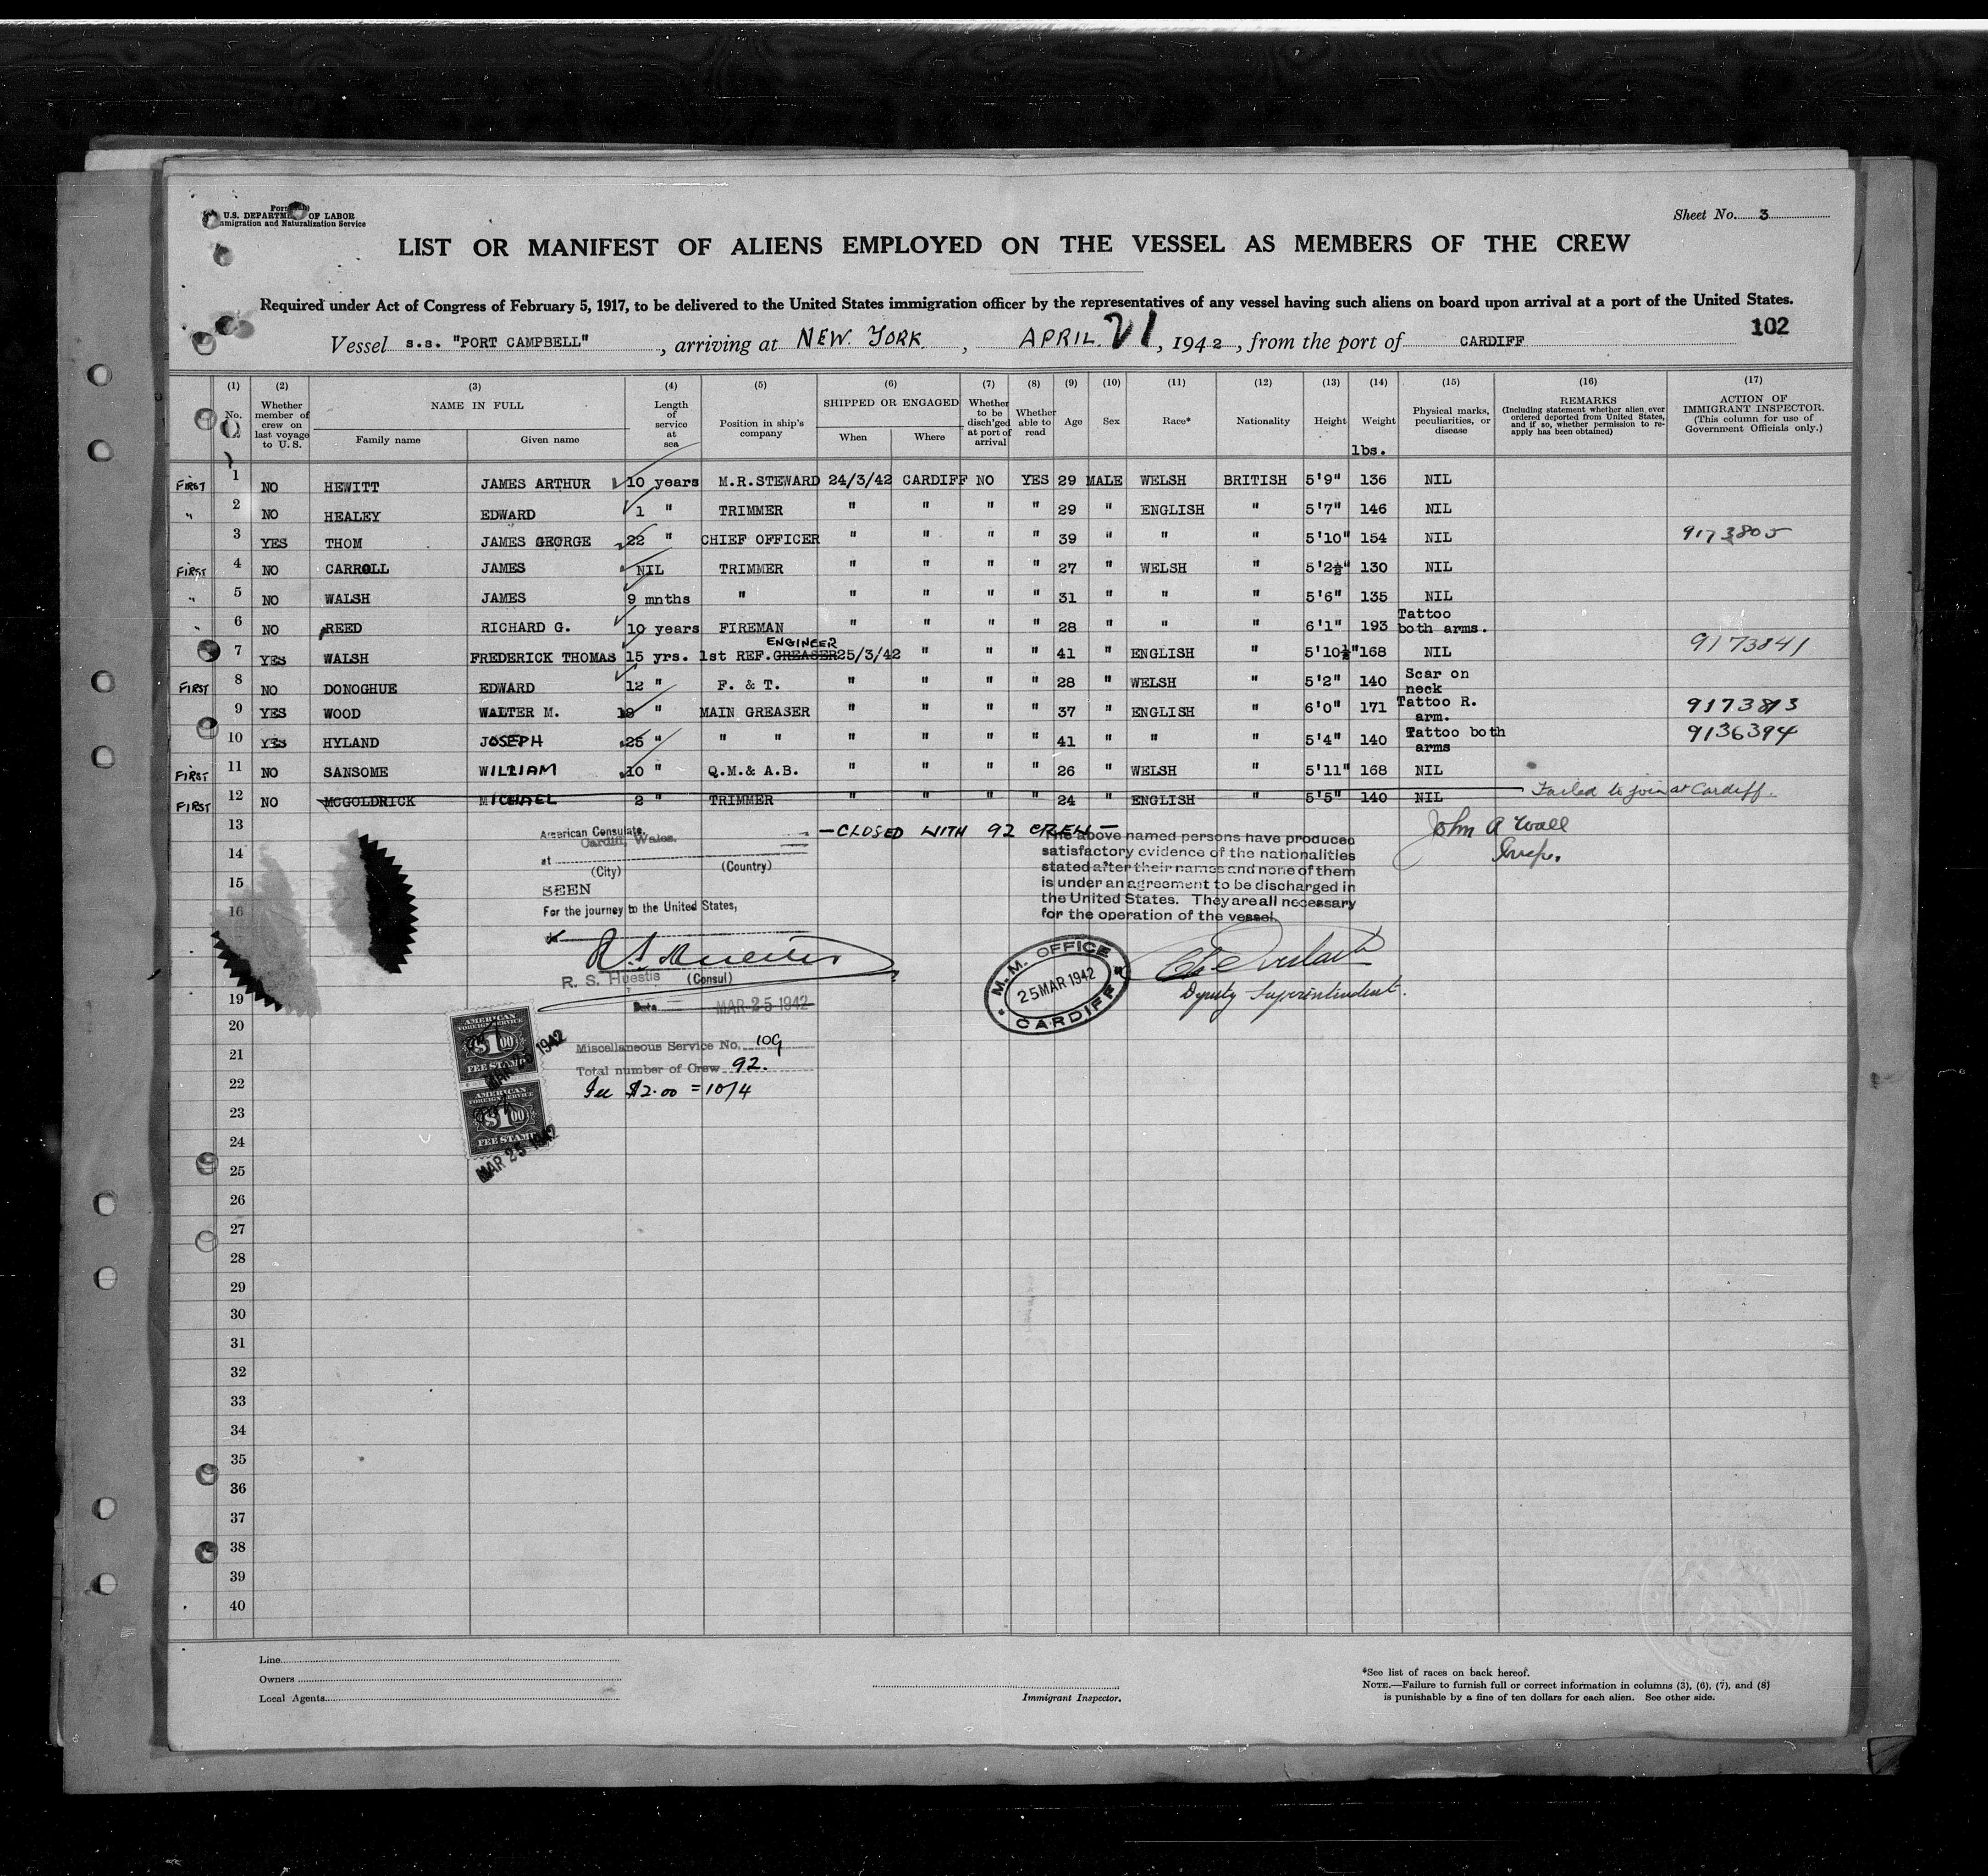 U.S. DEPARTMENT OF LABOR
Immigration and Naturalization Service
Sheet No. 3
LIST OR MANIFEST OF ALIENS EMPLOYED ON THE VESSEL AS MEMBERS OF THE CREW
Required under Act of Congress of February 5, 1917, to be delivered to the United States immigration officer by the representatives of any vessel having such aliens on board upon arrival at a port of the United States.
102
Vessel s.s. "PORT CAMPBELL", arriving at NEW YORK, APRIL 21, 1942, from the port of CARDIFF
(1) (2) (3) (4) (5) (6) (7) (8) (9) (10) (11) (12) (13) (14) (15) (16) (17)
No. Whether member of crew on last voyage to U. S. NAME IN FULL Family name Given name Length of service at sea Position in ship's company SHIPPED OR ENGAGED When Where Whether to be disch'ged at port of arrival Whether able to read Age Sex Race* Nationality Height Weight Physical marks, peculiarities, or disease REMARKS (Including statement whether alien ever ordered deported from United States, and if so, whether permission to re-apply has been obtained) ACTION OF IMMIGRANT INSPECTOR. (This column for use of Government Officials only.)
lbs.
FIRST 1 NO HEWITT JAMES ARTHUR 10 years M.R.STEWARD 24/3/42 CARDIFF NO YES 29 MALE WELSH BRITISH 5'9" 136 NIL
" 2 NO HEALEY EDWARD 1 " TRIMMER " " " " 29 " ENGLISH " 5'7" 146 NIL
3 YES THOM JAMES GEORGE 22 " CHIEF OFFICER " " " " 39 " " " 5'10" 154 NIL 9173805
FIRST 4 NO CARROLL JAMES NIL TRIMMER " " " " 27 " WELSH " 5'2½" 130 NIL
" 5 NO WALSH JAMES 9 mnths " " " " " 31 " " " 5'6" 135 NIL
" 6 NO REED RICHARD G. 10 years FIREMAN " " " " 28 " " " 6'1" 193 Tattoo both arms.
7 YES WALSH FREDERICK THOMAS 15 yrs. 1st REF. GREASER ENGINEER 25/3/42 " " " 41 " ENGLISH " 5'10½" 168 NIL 9173841
FIRST 8 NO DONOGHUE EDWARD 12 " F. & T. " " " " 28 " WELSH " 5'2" 140 Scar on neck
9 YES WOOD WALTER M. " MAIN GREASER " " " " 37 " ENGLISH " 6'0" 171 Tattoo R. arm. 9173813
10 YES HYLAND JOSEPH 25 " " " " " " " 41 " " " 5'4" 140 Tattoo both arms 9136394
FIRST 11 NO SANSOME WILLIAM 10 " Q.M.& A.B. " " " " 26 " WELSH " 5'11" 168 NIL
FIRST 12 NO MCGOLDRICK MICHAEL 2 " TRIMMER " " " " 24 " ENGLISH " 5'5" 140 NIL Failed to join at Cardiff.
13
— CLOSED WITH 92 CREW —
John A Wall
Insp.
American Consulate,
Cardiff, Wales.
at
(City) (Country)
SEEN
For the journey to the United States,
R. S. Huestis (Consul)
Date MAR 25 1942
The above named persons have produced
satisfactory evidence of the nationalities
stated after their names and none of them
is under an agreement to be discharged in
the United States. They are all necessary
for the operation of the vessel.
14
15
16
M.M. OFFICE
25 MAR 1942
CARDIFF
Deputy Superintendent.
19
20
AMERICAN
FOREIGN SERVICE
$1.00
FEE STAMP
MAR 25 1942
AMERICAN
FOREIGN SERVICE
$1.00
FEE STAMP
MAR 25 1942
Miscellaneous Service No. 109
Total number of Crew 92.
Fee $2.00 = 10/4
21
22
23
24
25
26
27
28
29
30
31
32
33
34
35
36
37
38
39
40
Line
Owners
Local Agents
Immigrant Inspector.
*See list of races on back hereof.
NOTE.—Failure to furnish full or correct information in columns (3), (6), (7), and (8)
is punishable by a fine of ten dollars for each alien. See other side.